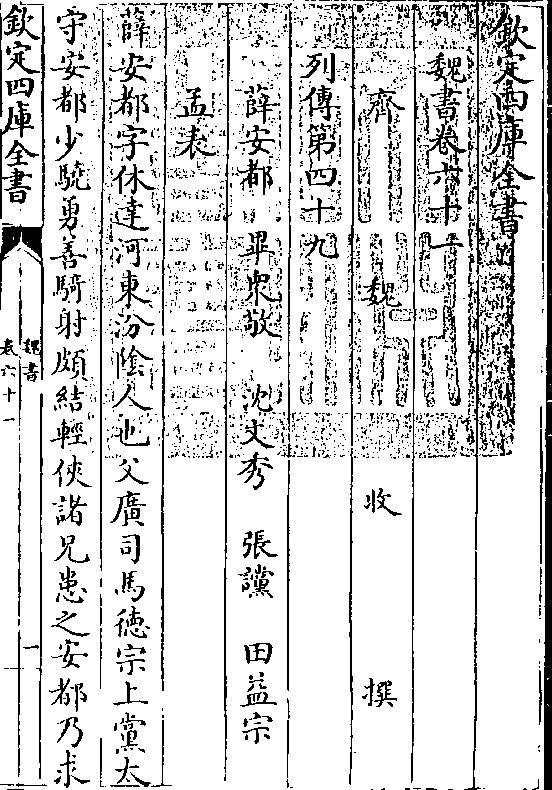 欽定四庫全書
魏書卷六十一
齊 魏 收 撰
列傳第四十九
薛安都 畢衆敬 沈文秀 張讜 田益宗
孟表
薛安都字休達河東汾陰人也父廣司馬徳宗上黨太
守安都少驍勇善騎射頗結輕俠諸兄患之安都乃求
欽定四庫全書
魏書
卷六十一
一